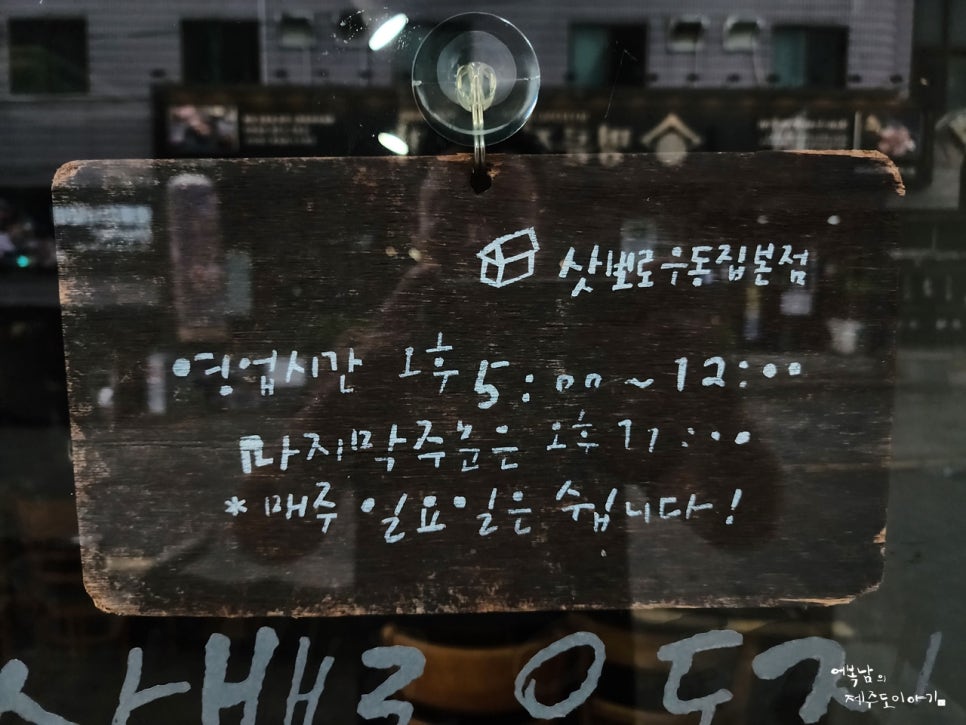 삿벨로우동집본점
영업시간 오후 5:00~12:00
마지막주문은 오후 11:00
*매주 일요일은 쉽니다!
어복남의
제주도이야기